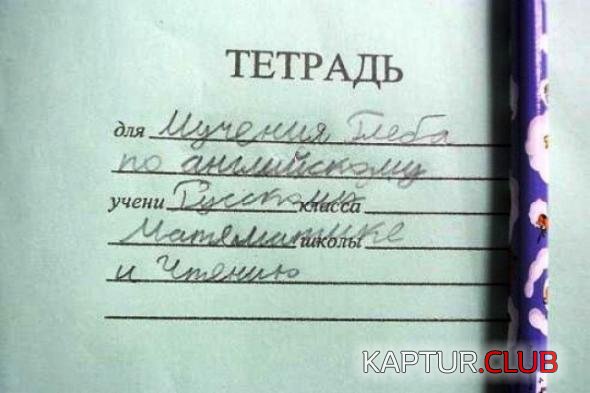 ТЕТРАДЬ
для Мучения Глеба
по английскому
учени Русскому класса
Математике школы
и Чтению
KAPTUR.CLUB